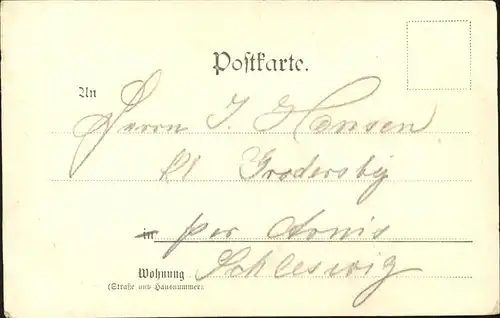 Postkarte.
An
Herrn J. Hansen
Kl Grödersby
in per Arnis
Wohnung Schleswig
(Straße und Hausnummer)